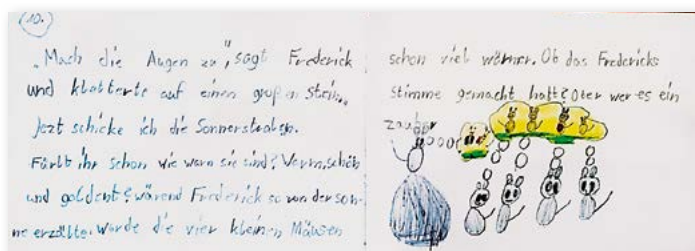 (10.)
„Mach die Augen zu", sagt Frederick
und kletterte auf einen großen Stein.
Jezt schicke ich die Sonnenstraalen.
Fürlt ihr schon wie warm sie sind? Warm, schön
und goldent? wärend Frederick so von der son-
ne erzälte. Wurde die vier kleinen Mäusen
schon viel wärmer. Ob das Fredericks
Stimme gemacht hatt? Oter wer es ein
zauber